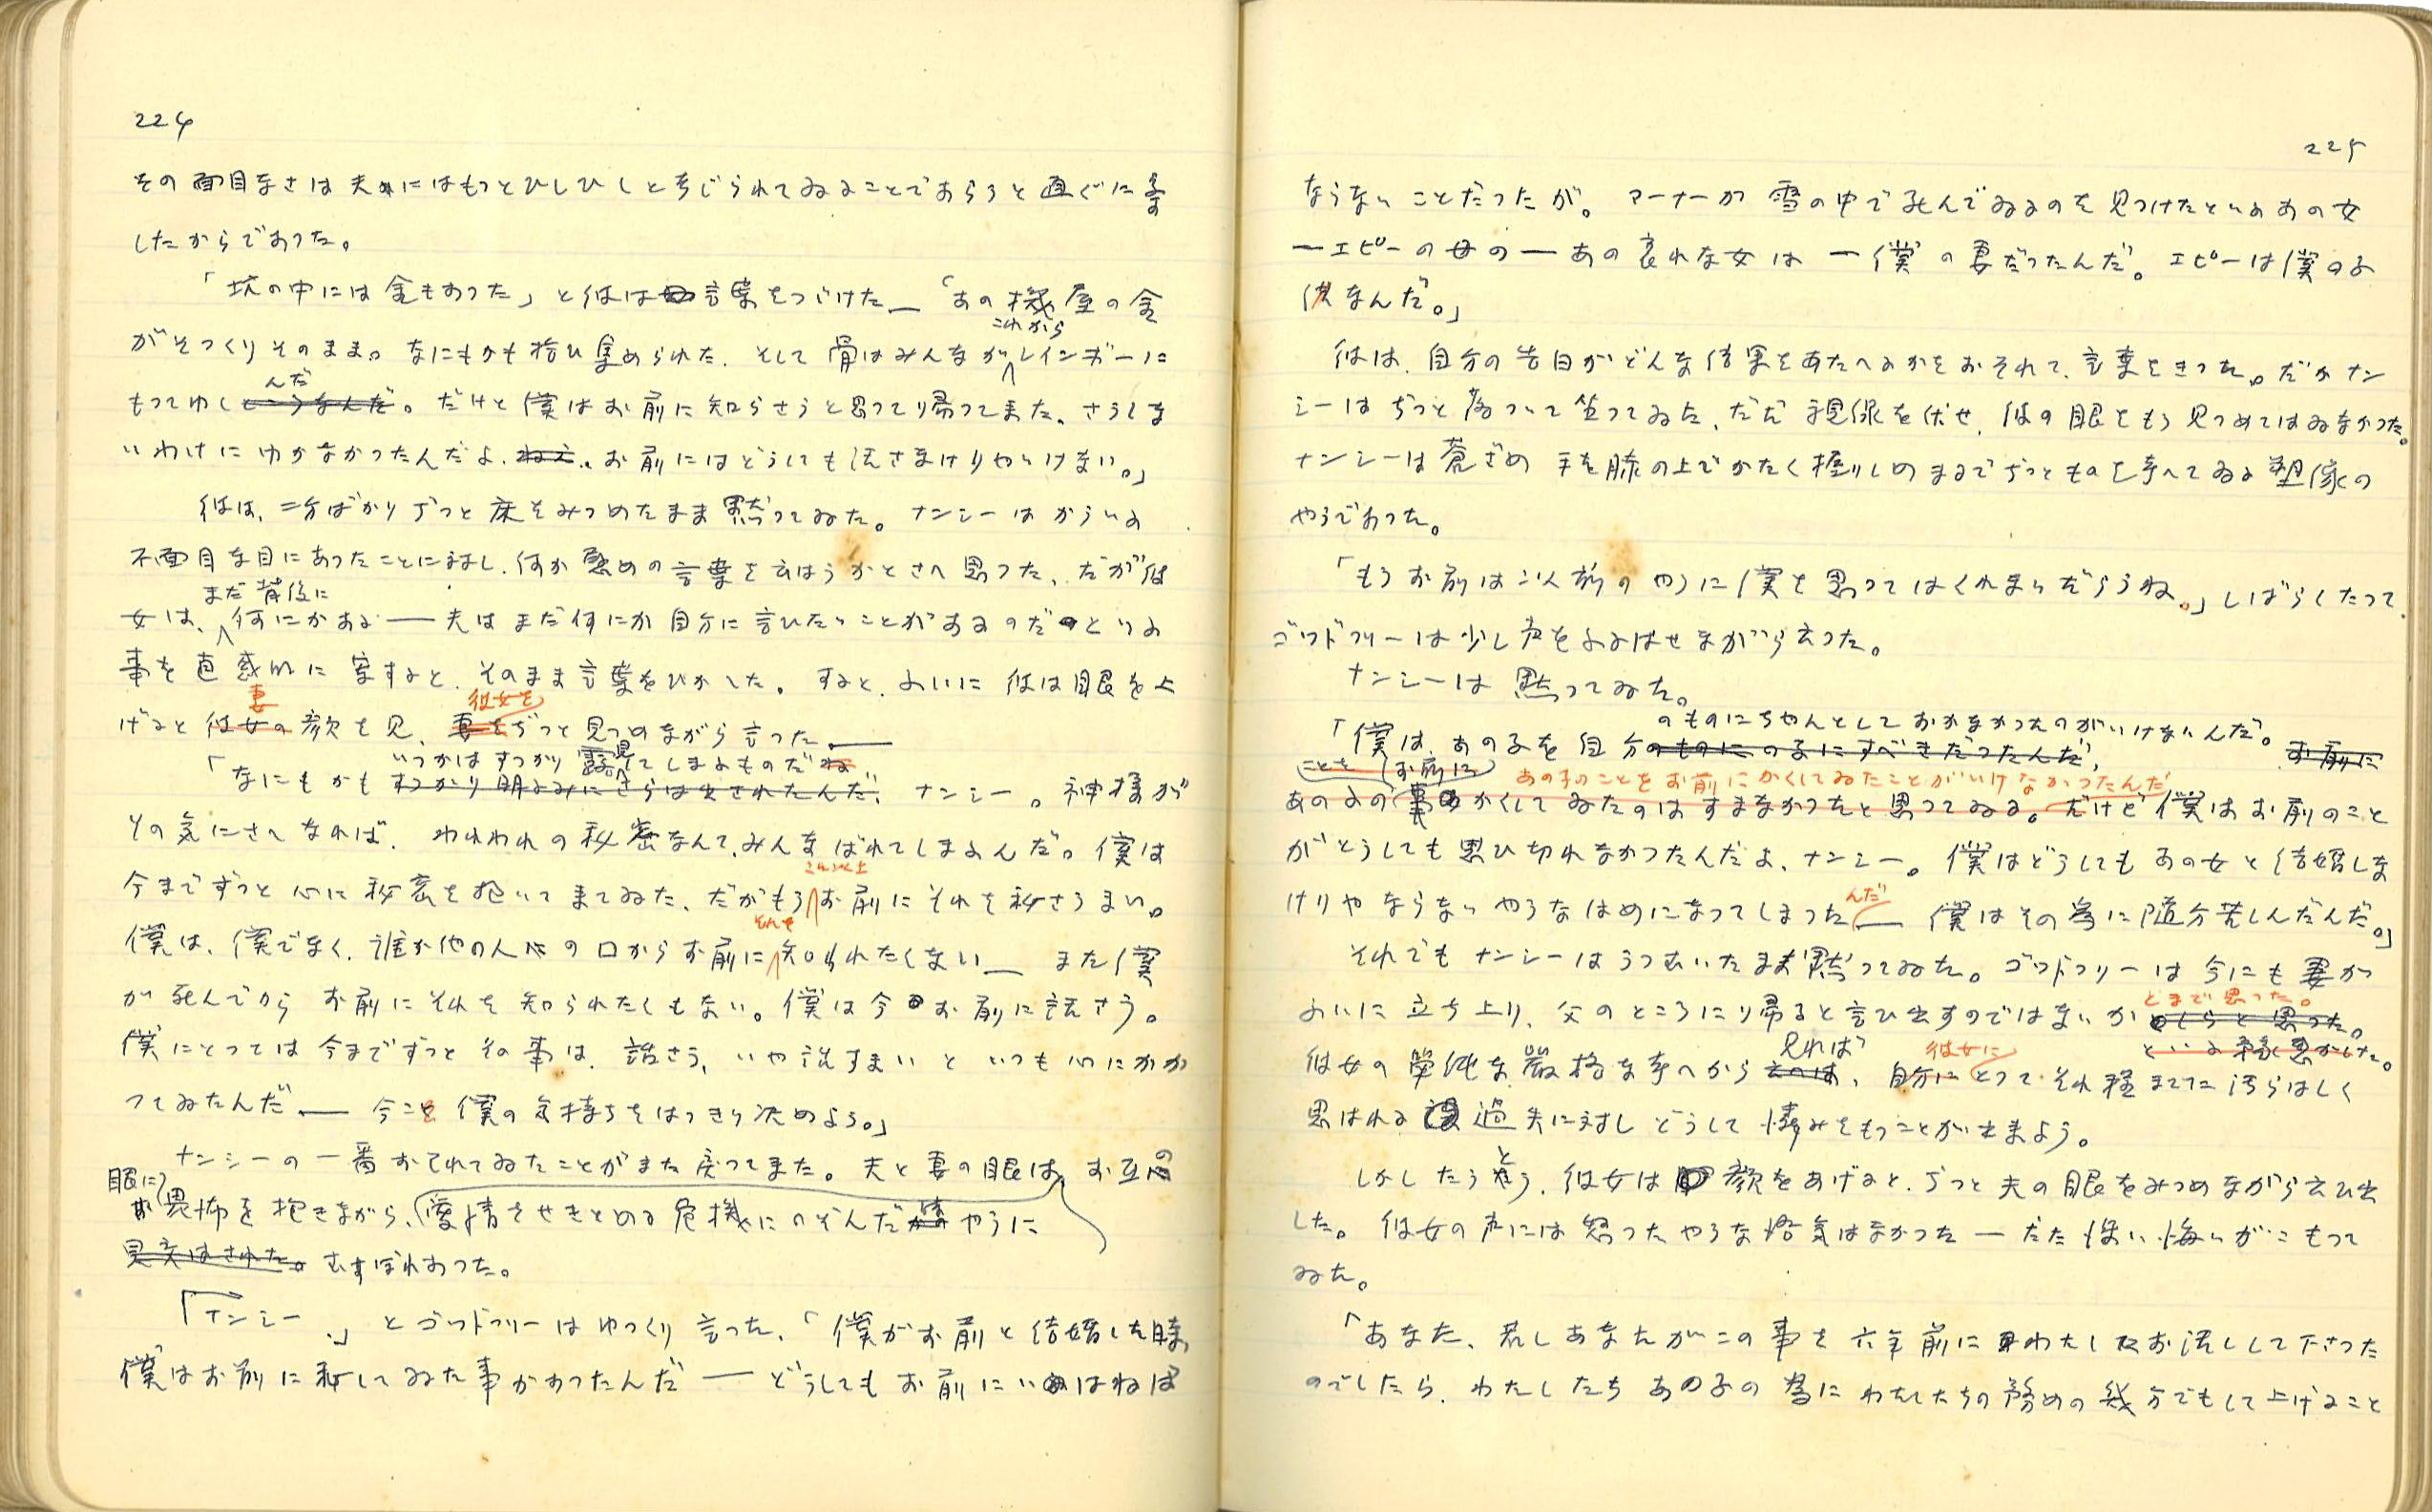 224
その面目なさは夫にはもつとひしひしと感じられてゐることであらうと直ぐに察
したからであつた。
「坑の中には金もあつた」と彼は言葉をつゞけた― 「あの機屋の金
がそつくりそのまま。なにもかも拾ひ集められた、そして骨はみんながこれからレインボーに
もつてゆくんだ。だけど僕はお前に知らさうと思つて帰つてきた、さうしな
いわけにゆかなかつたんだよ、お前にはどうしても話さなけりやいけない。」
彼は、二分ばかりぢつと床をみつめたまま黙つてゐた。ナンシーはかういふ
不面目な目にあつたことに対し、何か慰めの言葉を云はうかとさへ思つた、だが彼
女は、まだ背後に何にかある―夫はまだ何にか自分に言ひたいことがあるのだといふ
事を直感的に察すると、そのまま言葉をひかへた。すると、ふいに彼は眼を上
げると妻の顔を見、彼女をぢつと見つめながら言つた―
「なにもかもいつかはすつかり露見してしまふものだ、ナンシー。神様が
その気にさへなれば、われわれの秘密なんて、みんなばれてしまふんだ。僕は
今までずつと心に秘密を抱いて来てゐた、だがもうこれ以上お前にそれを秘さうまい。
僕は、僕でなく、誰か他の人の口からお前にそれを知られたくない― また僕
が死んでからお前にそれを知られたくもない。僕は今お前に話さう。
僕にとつては今までずつとその事は、話さう、いや話すまいといつも心にかか
つてゐたんだ― 今こそ僕の気持ちをはつきり決めよう。」
ナンシーの一番おそれてゐたことがまた戻つてきた。夫と妻の眼は、お互の
眼に畏怖を抱きながら、愛情をせきとめる危機にのぞんだやうに
むすぼれあつた。
「ナンシー、」とゴッドフリーはゆつくり言つた、「僕がお前と結婚した時、
僕はお前に秘してゐた事があつたんだ―どうしてもお前にいはねば
225
ならないことだつたが。マーナーが雪の中で死んでゐるのを見つけたといふあの女
―エピーの母の―あの哀れな女は―僕の妻だつたんだ。エピーは僕の子
供なんだ。」
彼は、自分の告白がどんな結果をあたへるかをおそれて、言葉をきつた。だがナン
シーはぢつと落ついて坐つてゐた、ただ視線を伏せ、彼の眼をもう見つめてはゐなかつた。
ナンシーは蒼ざめ手を膝の上でかたく握りしめまるでぢつとものを考へてゐる塑像の
やうであつた。
「もうお前は以前のやうに僕を思つてはくれまいだらうね。」しばらくたつて
ゴッドフリーは少し声をふるはせながら云つた。
ナンシーは黙つてゐた。
「僕は、あの子を自分のものにちやんとしておかなかつたのがいけないんだ。
あの子のことをお前にかくしてゐたことがいけなかつたんだ だけど僕はお前のこと
がどうしても思ひ切れなかつたんだよ、ナンシー。僕はどうしてもあの女と結婚しな
けりやならないやうなはめになつてしまつたんだ― 僕はその為に随分苦しんだんだ。」
それでもナンシーはうつむいたまま黙つてゐた。ゴッドフリーは今にも妻が
ふいに立ち上り、父のところに帰ると言ひ出すのではないかとまで思つた。
彼女の単純な、厳格な考へから見れば、彼女にとつてそれ程までに汚らはしく
思はれる過失に対しどうして憐みをもつことが出来よう。
しかしたうとう、彼女は顔をあげると、ぢつと夫の眼をみつめながら云ひ出
した。彼女の声には怒つたやうな語気はなかつた―ただ深い悔いがこもつて
ゐた。
「あなた、若しあなたがこの事を六年前にわたしにお話しして下さつた
のでしたら、わたしたちあの子の為にわたしたちの務めの幾分でもして上げること